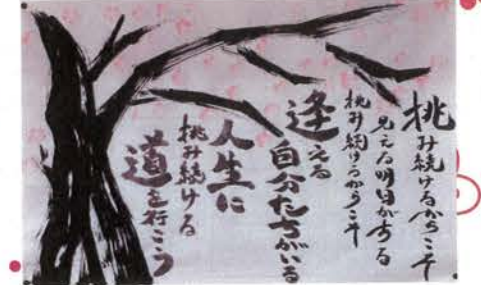 挑み続けるからこそ
見える明日がある
挑み続けるからこそ
逢える
自分たちがいる
人生に
挑み続ける
道を行こう